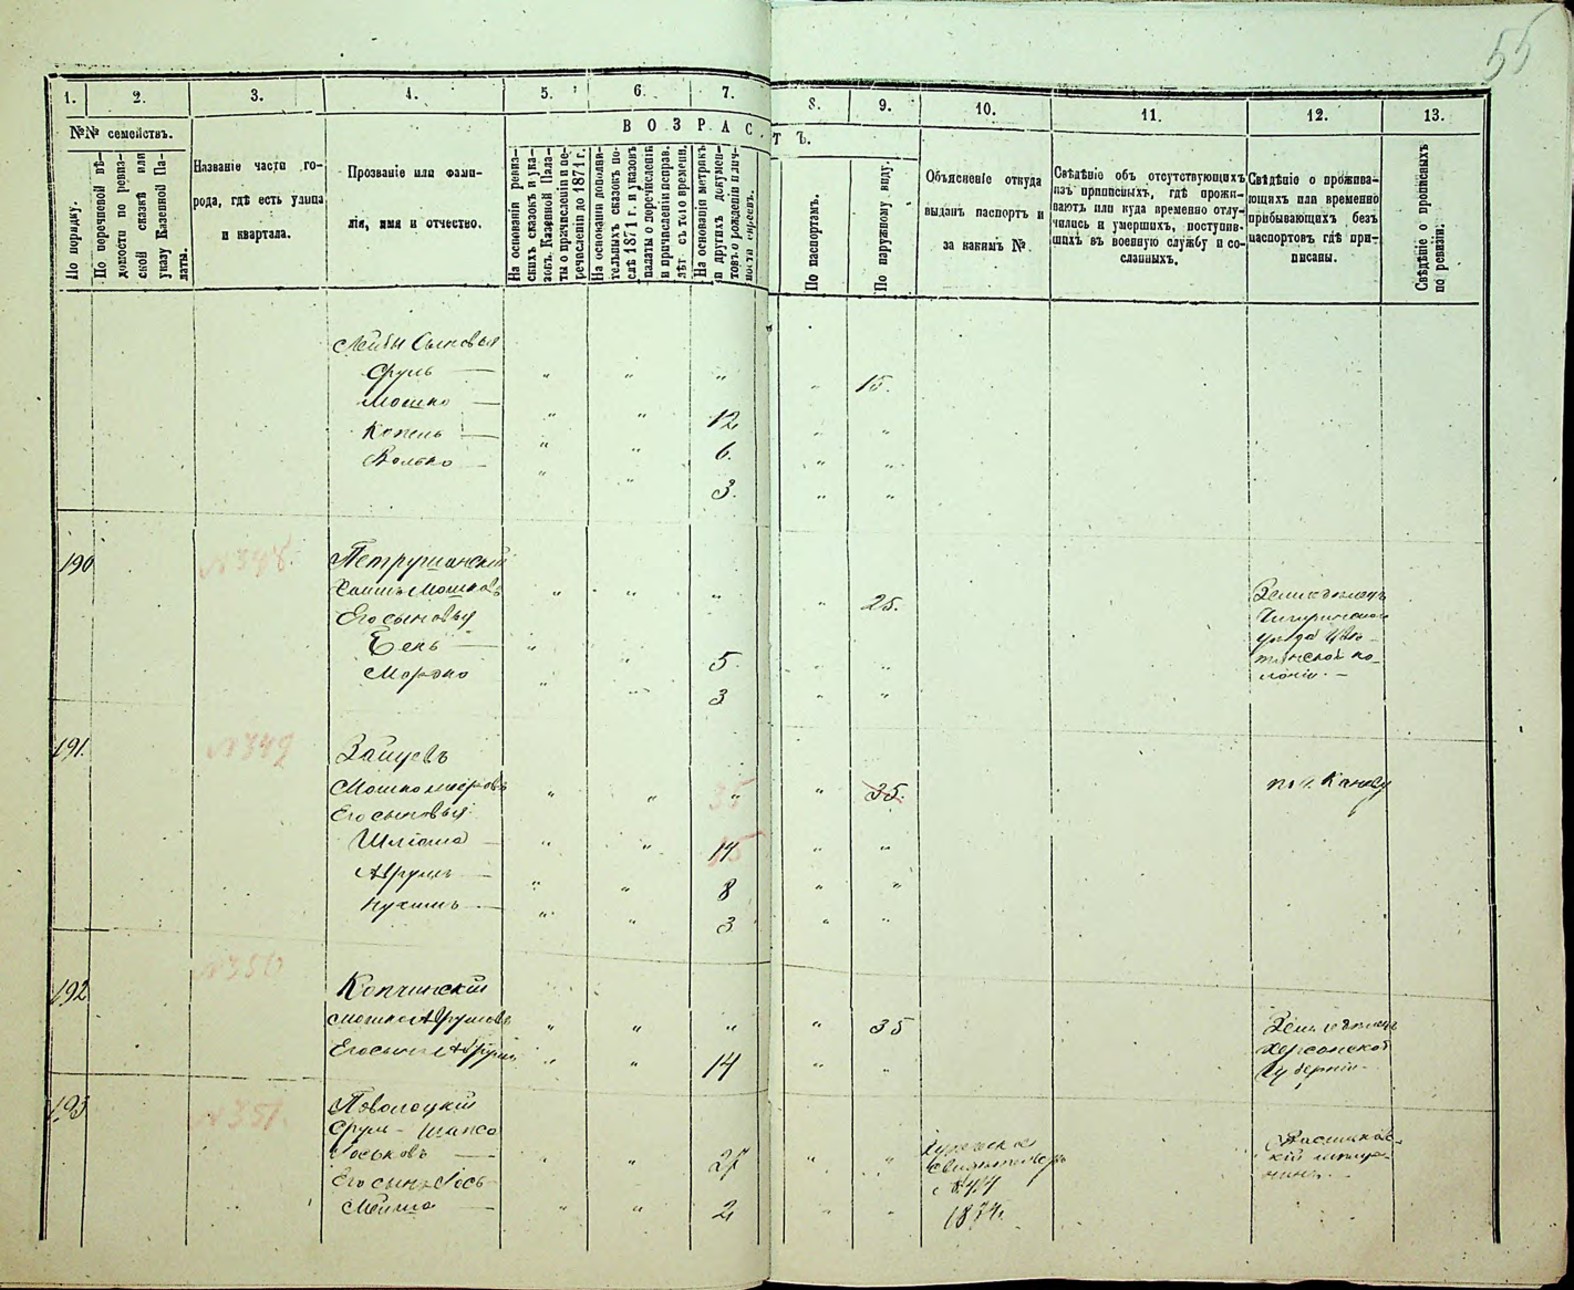 55
1.
2.
3.
4.
5.
6.
7.
8.
9.
10.
11.
12.
13.
№№ семействъ.
По порядку.
По перечневой вѣ-
домости по ревиз-
ской сказкѣ или
указу Казенной Па-
латы.
Названіе части го-
рода, гдѣ есть улица
и квартала.
Прозваніе или фами-
лія, имя и отчество.
ВОЗРАСТЪ.
На основаніи ревиз-
скихъ сказокъ и ука-
зовъ Казенной Пала-
ты о причисленіи и пе-
речисленіи до 1871 г.
На основаніи дополни-
тельныхъ сказокъ по-
слѣ 1871 г. и указовъ
палаты о перечисленіи
и причисленіи исправ.
лѣт съ того времени.
На основаніи метрикъ
и другихъ докумен-
товъ о рожденіи и лич-
ности евреевъ.
По паспортамъ.
По наружному виду.
Объясненіе откуда
выданъ паспортъ и
за какимъ №.
Свѣдѣніе объ отсутствующихъ
изъ приписныхъ, гдѣ прожи-
ваютъ или куда временно отлу-
чились и умершихъ, поступив-
шихъ въ военную службу и со-
сланныхъ.
Свѣдѣніе о прожива-
ющихъ или временно
прибывающихъ безъ
паспортовъ гдѣ при-
писаны.
Свѣдѣніе о прописныхъ
по ревизіи.
Лейбы Сыновья
Сруль — " " " " 15.
Мошко — " " 12 " "
Копель — " " 6. " "
Волько — " " 3. " "
190
№348.
Петрушанскій
Хаимъ Мошковъ " " " " 25.
Его сыновья
Бень — " " 5. " "
Мордко " " 3 " "
Земледѣлецъ
Чигиринскаго
уѣзда
ко-
лоніи. —
191.
№349
Зайцевъ
Мошко Мееровъ " " 35 " 35.
пос. Каневу
Его сыновья
Шліома — " " 14 15 " "
Аврумъ — " " 8 " "
Нухимъ — " " 3 " "
192
№350
Копчинскій
Мошко Аврумовъ " " " " 35
Его сынъ Аврумъ " " 14 " "
Земледѣлецъ
Херсонской
Губерніи.
193
№351.
Поволоцкій
Сруль - Шапса
Іоськовъ — " " 27 " "
Его сынъ Іось-
Мейша — " " 2 " "
свидѣтельст
1874.
кій мѣща-
нинъ. —